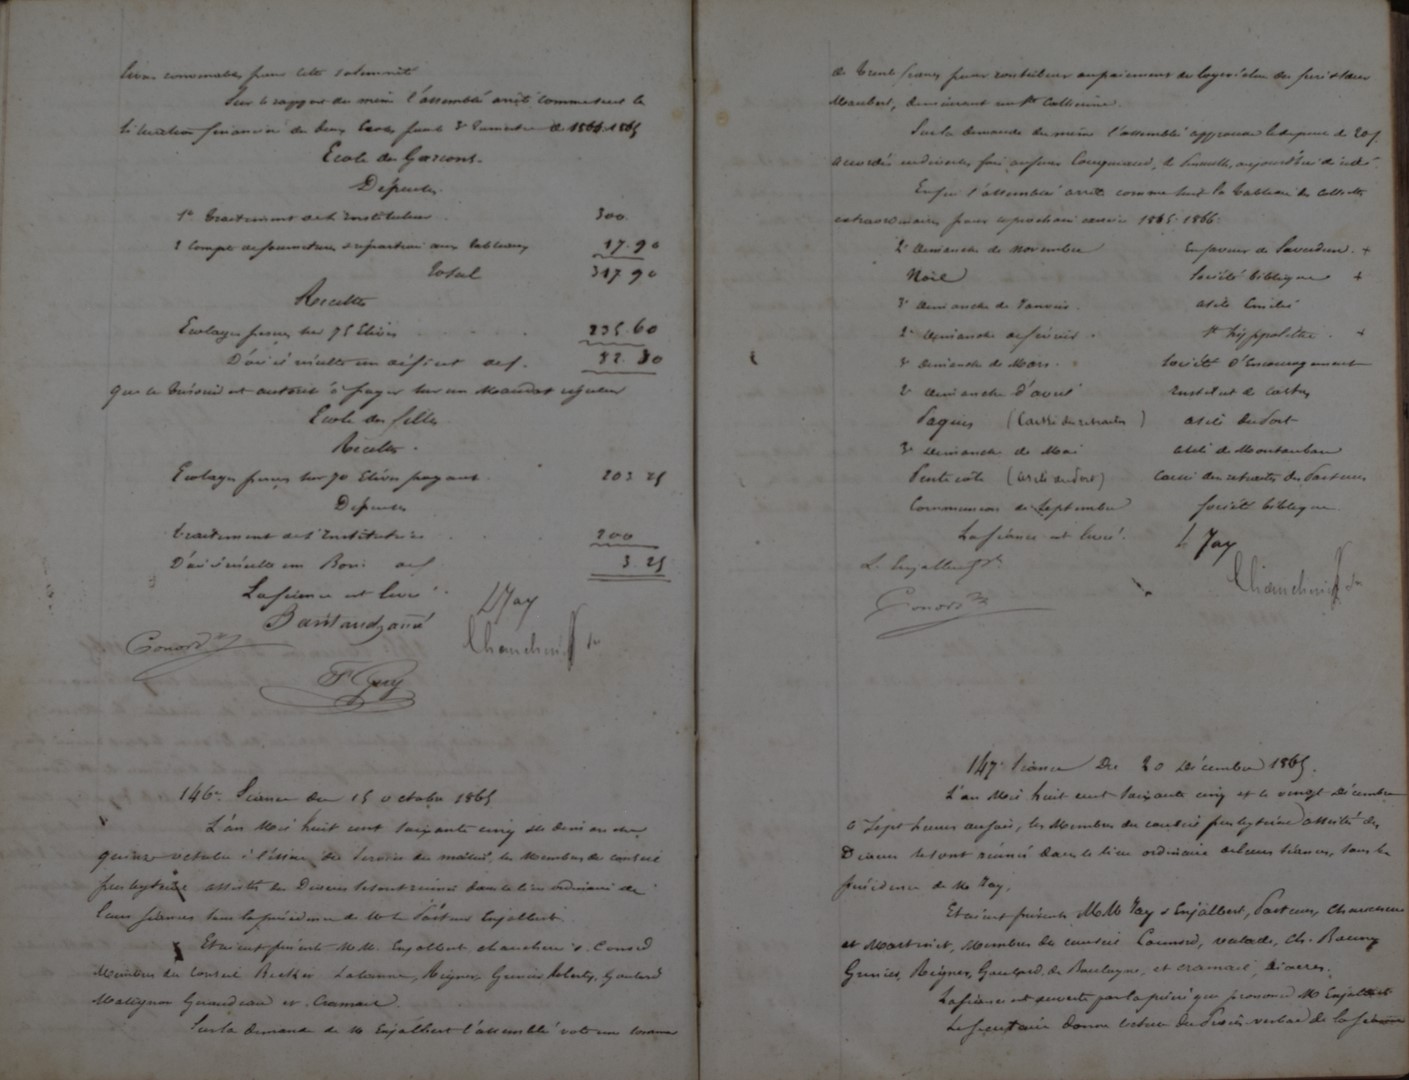 livres convenables pour cette solennité
Sur le rapport du même l'assemblée arrête comme suit la
situation financière des deux Ecoles pour le 3e Trimestre de 1864-1865
Ecole des Garçons.
Dépenses
1° Traitement de l'Instituteur 300
2 Compte de fournitures & réparations aux tableaux 17.90
Total 317 90
Recettes
Ecolages perçus sur 75 Elèves 235.60
D'où il résulte un déficit de f. 82.30
que le Trésorier est autorisé à payer sur un Mandat régulier
Ecole des filles
Recettes.
Ecolages perçus sur 70 Elèves payants. 203 25
Dépenses
Traitement de l'Institutrice 200
D'où il résulte un Boni de f 3.25
La séance est levée.
L Jay
Conord
F Guy
146e Séance du 15 octobre 1865
L'an Mil huit cent soixante cinq et le dimanche
quinze octobre à l'issue du Service du matin, les Membres du conseil
presbytéral assistés des Diacres se sont réunis dans le lieu ordinaire de
leurs séances sous la présidence de M. le Pasteur Enjalbert.
Etaient présents M.M. Enjalbert, Conord
Membres du Conseil Lavanne, Reignes, Grenier, Roberty, Goulard
et Cramail.
Sur la demande de M Enjalbert l'assemblée vote une somme
de trente francs pour contribuer au paiement du loyer
Maubert, demeurant rue Ste Catherine.
Sur la demande du même l'assemblée approuve la dépense de 20 f.
accordés au décédé.
Enfin l'assemblée arrête comme suit le tableau des collectes
extraordinaires pour le prochain exercice 1865-1866.
2e dimanche de novembre En faveur de +
Noël Société biblique +
3e dimanche de Janvier. asile
2e dimanche de février. St hyppolite. +
3e dimanche de Mars. Société d'Encouragement
2e dimanche d'avril Institut de Castres
Pâques (Caisse des retraites) asile Laforce
3e dimanche de Mai asile de Montauban
Pentecôte (asile Laforce) Caisse des retraites des Pasteurs
Communion de Septembre Société biblique
La séance est levée. L Jay
L. Enjalbert
Conord
147e Séance Du 20 Décembre 1865.
L'an Mil huit cent soixante cinq et le vingt Décembre
à Sept heures du soir, les Membres du conseil presbytéral assistés des
Diacres se sont réunis dans le lieu ordinaire de leurs séances, sous la
présidence de M. Jay.
Etaient présents M.M. Jay & Enjalbert, Pasteurs,
et Membres du conseil Ch.
Grenier, Reignes, Goulard, de Boulogne, et Cramail, Diacres.
La séance est ouverte par la prière que prononce M Enjalbert
Le Secrétaire donne lecture du Procès-verbal de la séance